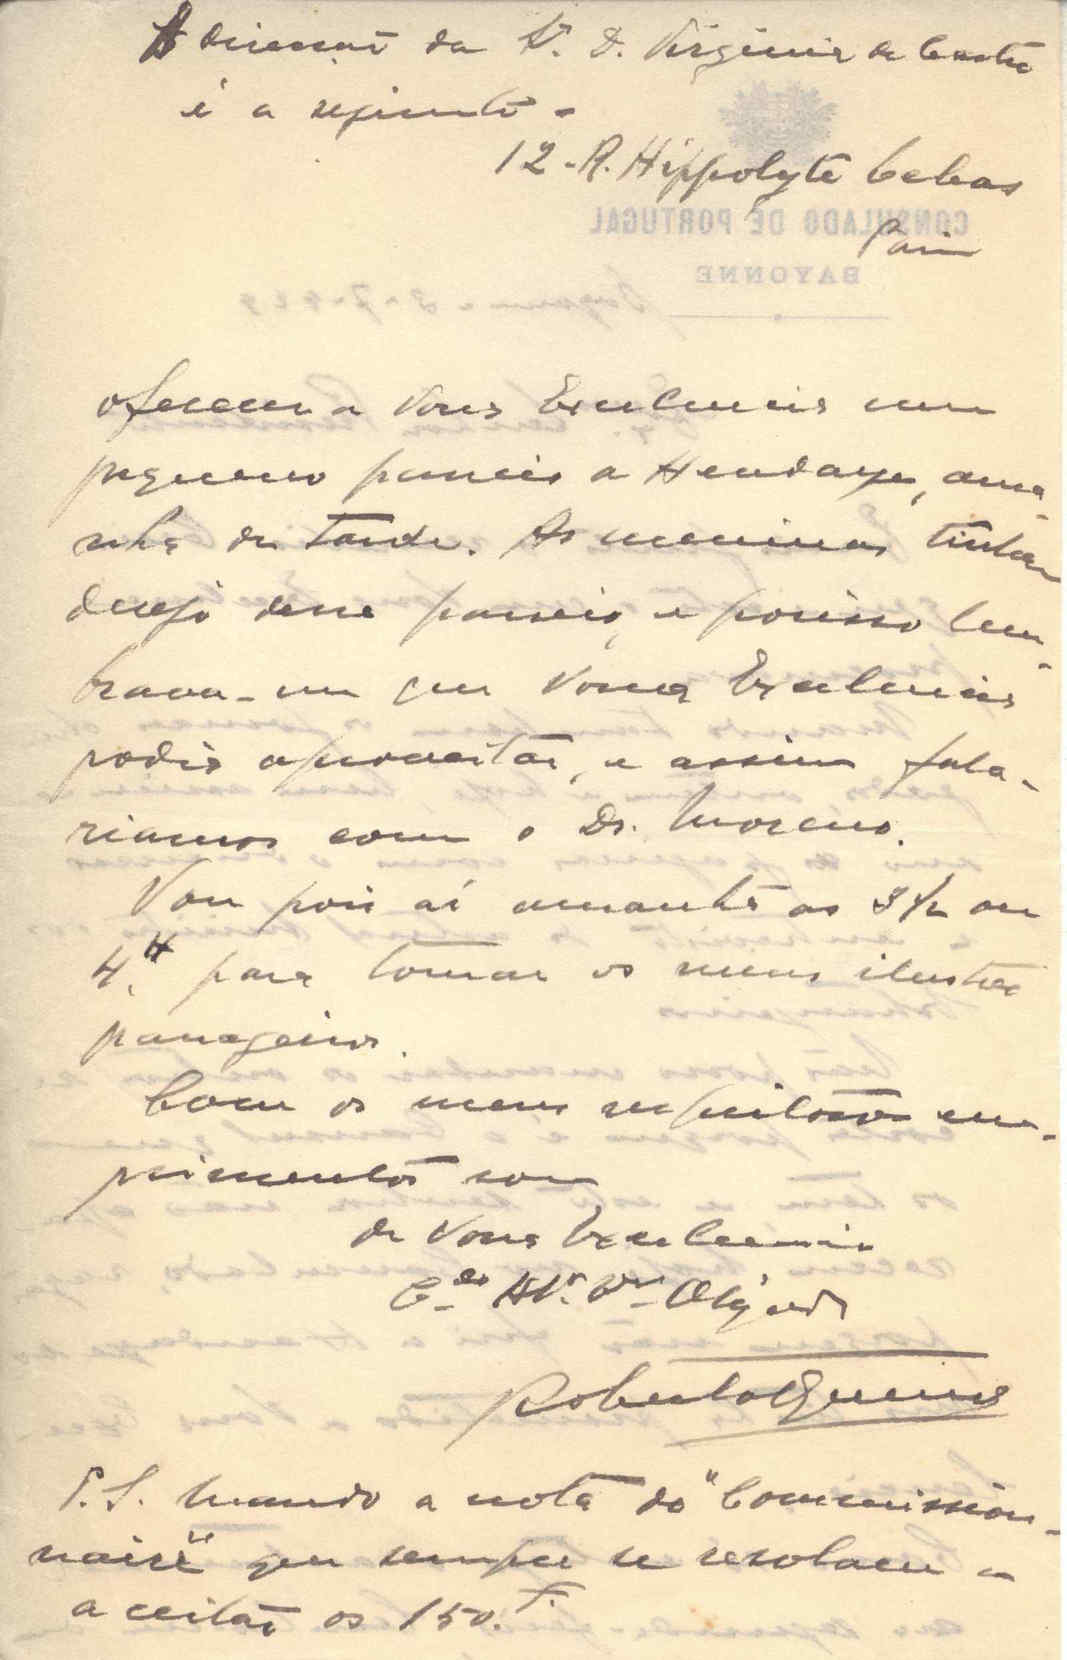 A direcção da Sr. D. Virginia de Castro
é a seguinte -
12 - R. Hippolyte Lebas
Paris
CONSULADO DE PORTUGAL
BAYONNE
oferecer a Vossa Excelencia um
pequeno passeio a Hendaye, ama-
nhã de tarde. As meninas tinham
desejo desse passeio, e por isso lem-
brava-me que Vossa Excelencia
podia aproveitar, e assim fala-
riamos com o Dr. Moreno.
Vou pois aí amanhã as 3 1/2 ou
4 H. para tomar os meus ilustres
passageiros.
Com os meus respeitosos cum-
primentos sou
de Vossa Excelencia
Obrigado
P.S. Mando a nota do "Commission-
naire" que sempre se resolveu a
aceitar os 150 F.